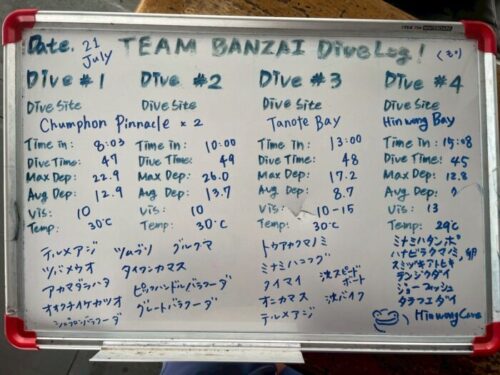 Date. 21 July TEAM BANZAI Dive Log!
Dive #1 Dive #2 Dive #3 Dive #4
Dive Site Dive Site Dive Site Dive Site
Chumphon Pinnacle × 2 Tanote Bay Hin wong Bay
Time in: 8:03 Time in: 10:00 Time in: 13:00 Time in: 15:08
Dive Time: 47 Dive Time: 49 Dive Time: 48 Dive Time: 45
Max Dep: 22.9 Max Dep: 26.0 Max Dep: 17.2 Max Dep: 12.8
Avg Dep: 12.9 Avg Dep: 13.7 Avg Dep: 8.7 Avg Dep:
Vis: 10 Vis: 10 Vis: 10-15 Vis: 13
Temp: 30℃ Temp: 30℃ Temp: 30℃ Temp: 29℃
テルメアジ ツムブリ グルクマ
ツバメウオ タイワンカマス
アカマダラハタ ピックハンドルバラクーダ
オオクチイケカツオ グレートバラクーダ
シェブロンバラクーダ
トウアカクマノミ
ミナミハコフグ
クイマイ 沈スピードボート
オニカマス 沈バイク
テルメアジ
ミナミハタンポ
ハナビラクマノミ 卵
スミツキアトヒキ
テンジクダイ
タテフエダイ
Hin wong Cave